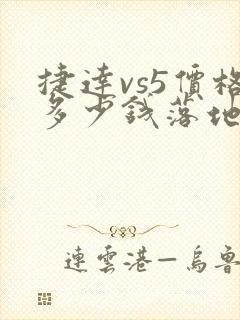 捷達vs5價格
多少錢落地
連雲港—烏魯